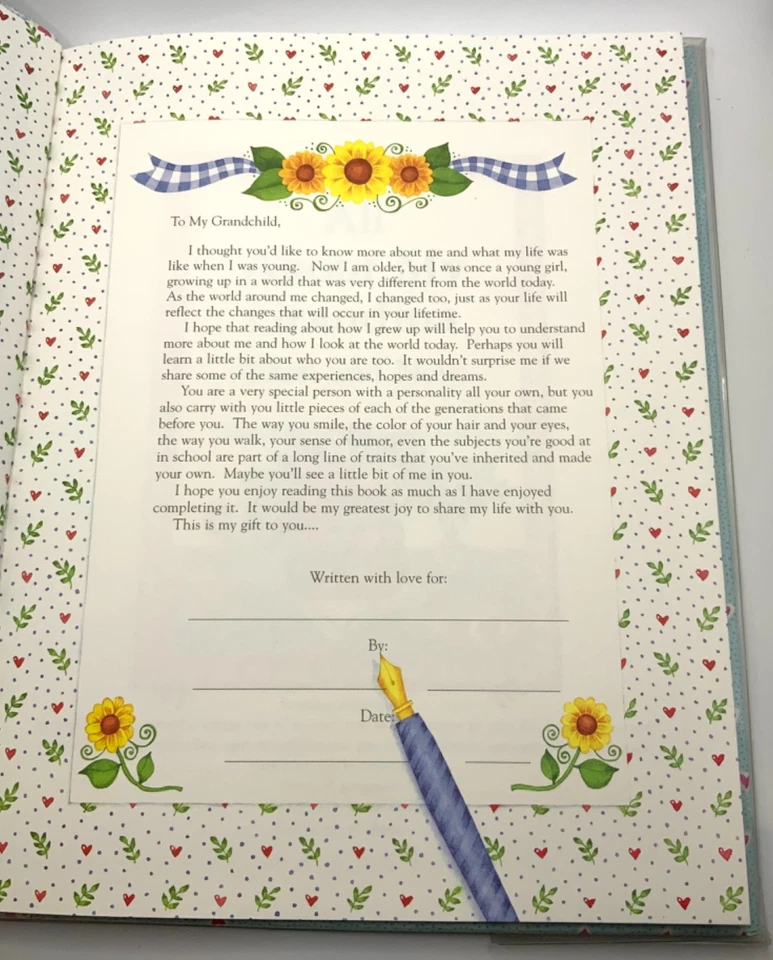 To My Grandchild,
I thought you'd like to know more about me and what my life was
like when I was young. Now I am older, but I was once a young girl,
growing up in a world that was very different from the world today.
As the world around me changed, I changed too, just as your life will
reflect the changes that will occur in your lifetime.
I hope that reading about how I grew up will help you to understand
more about me and how I look at the world today. Perhaps you will
learn a little bit about who you are too. It wouldn't surprise me if we
share some of the same experiences, hopes and dreams.
You are a very special person with a personality all your own, but you
also carry with you little pieces of each of the generations that came
before you. The way you smile, the color of your hair and your eyes,
the way you walk, your sense of humor, even the subjects you're good at
in school are part of a long line of traits that you've inherited and made
your own. Maybe you'll see a little bit of me in you.
I hope you enjoy reading this book as much as I have enjoyed
completing it. It would be my greatest joy to share my life with you.
This is my gift to you....
Written with love for:
By:
Date: